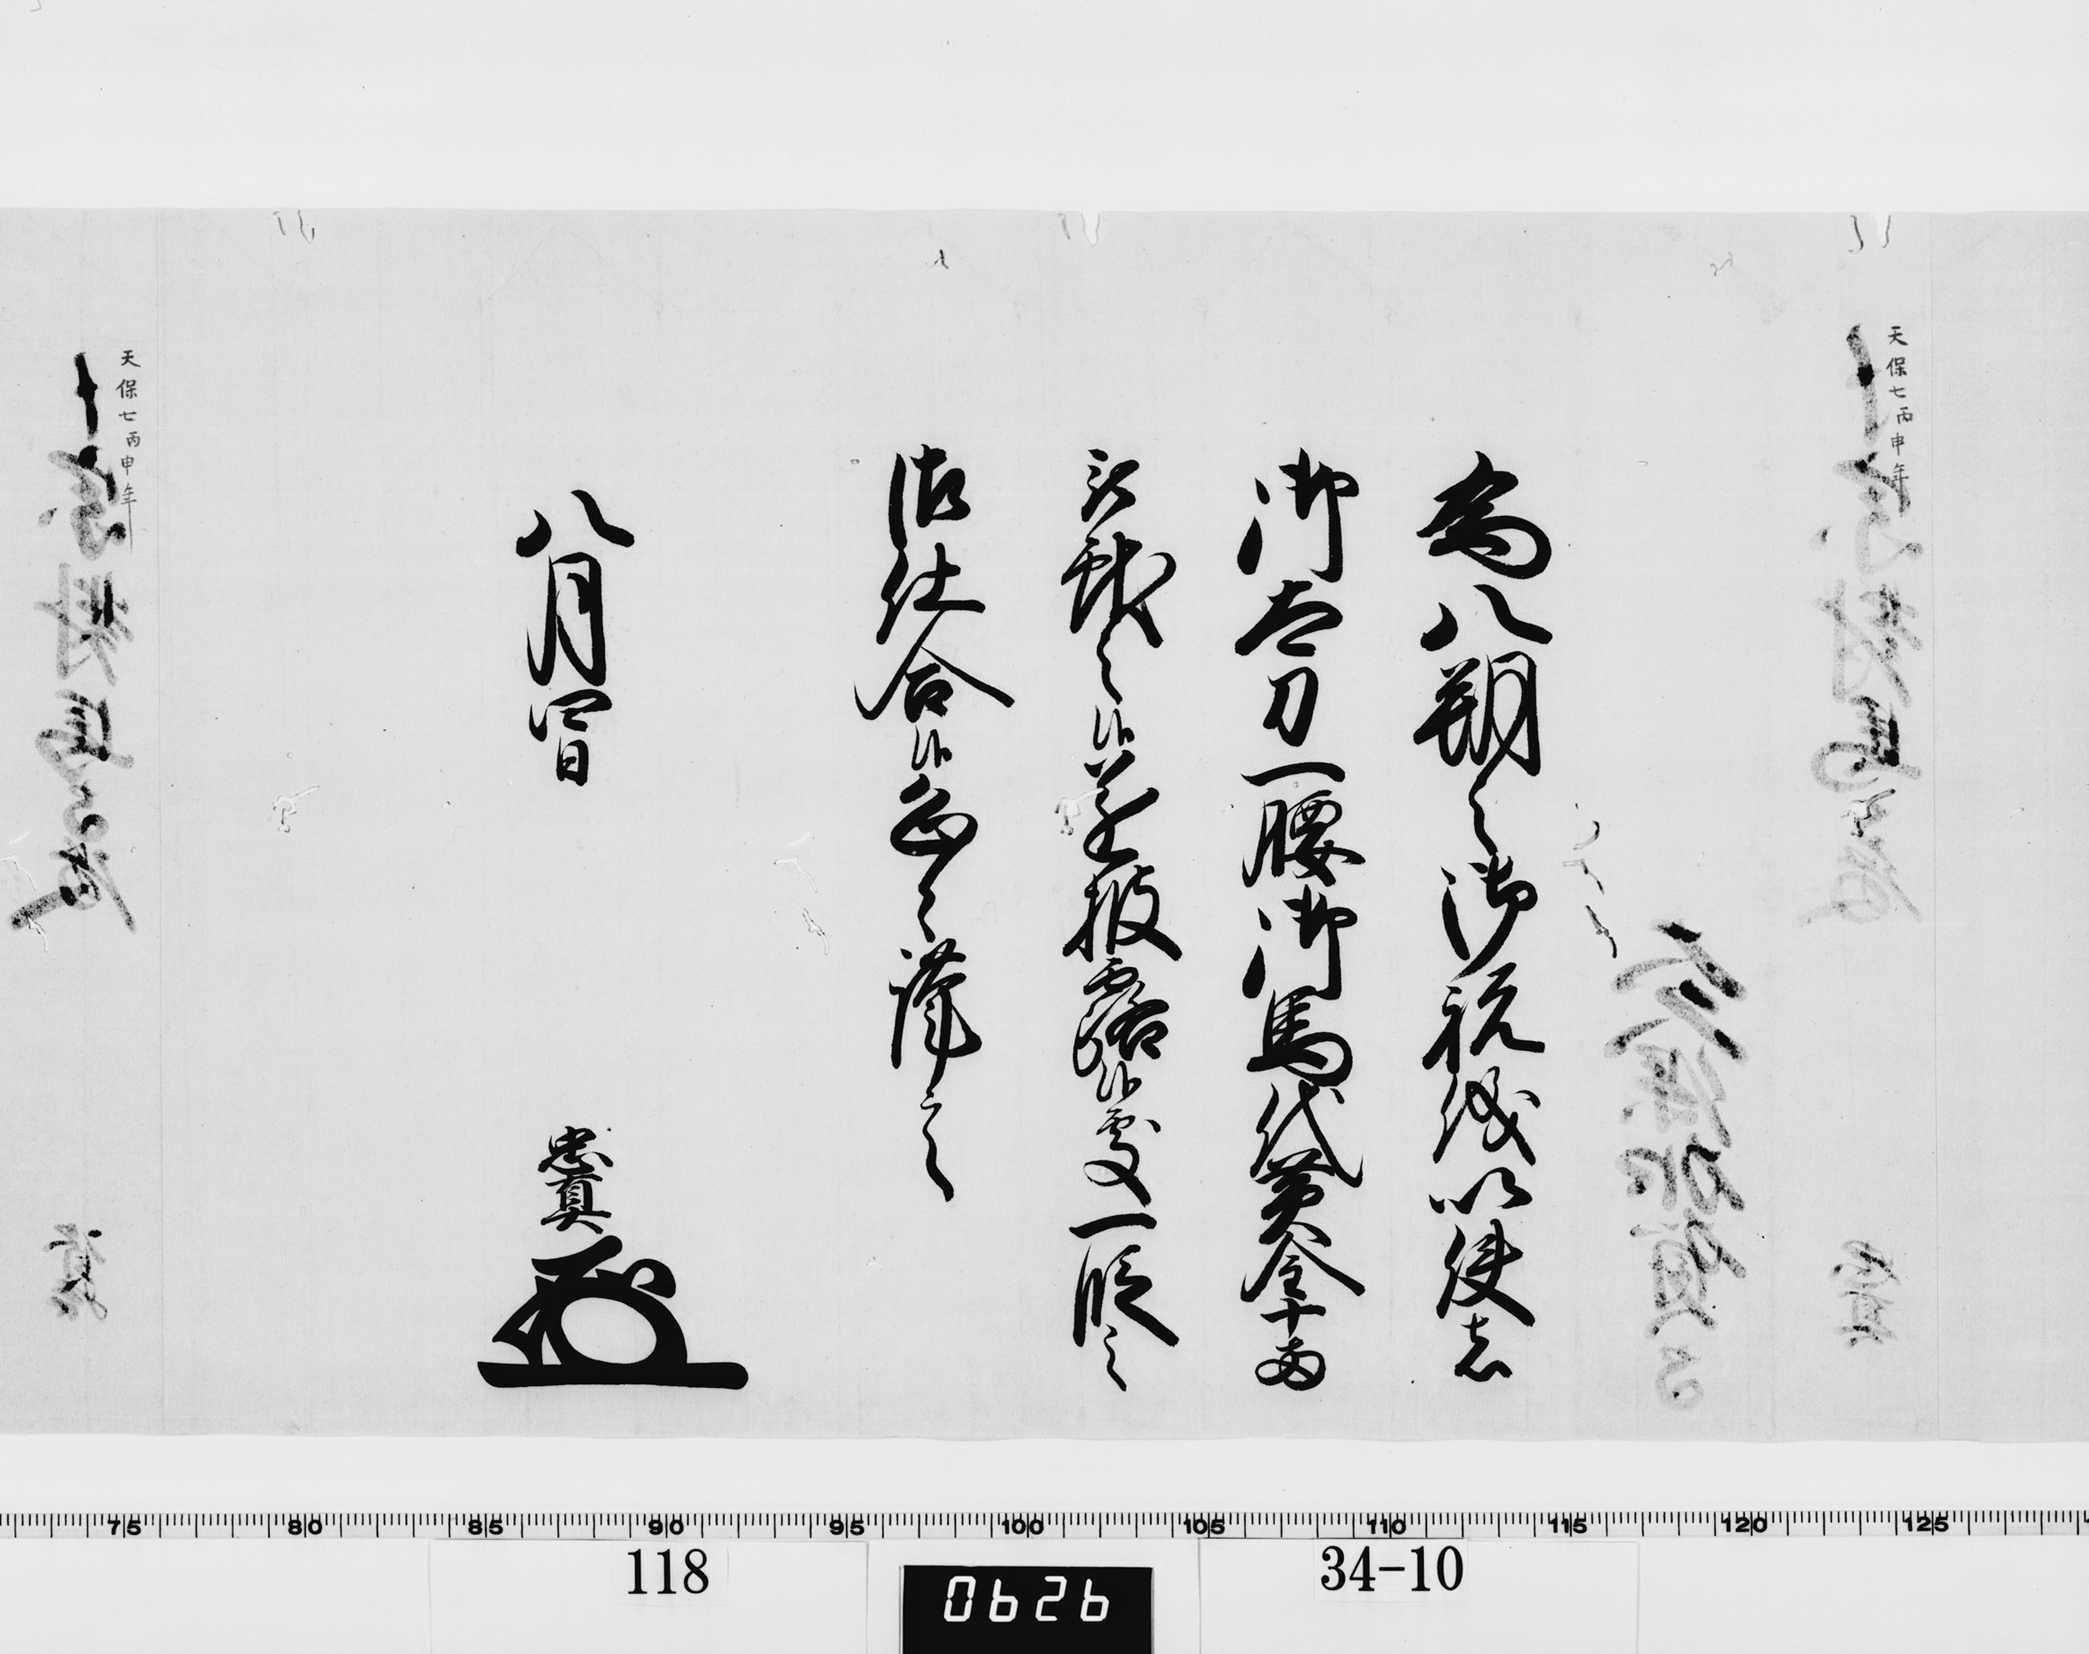 天保七丙申年
為八朔之御祝儀以使者
御太刀一腰御馬代黄金十両
被献之候遂披露候處一段之
御仕合候恐々謹言
八月四日
忠真
天保七丙申年
75 80 85 90 95 100 105 110 115 120 125
118
0626
34-10